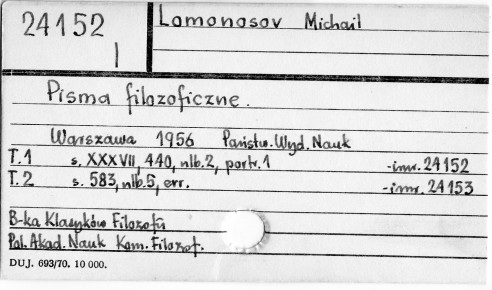 24152
I
Lomonosov Michail
Pisma filozoficzne.
Warszawa 1956 Państw. Wyd. Nauk
T.1 s. XXXVII, 440, nlb.2, portr.1 -inw. 24152
T.2 s. 583, nlb.5, err. -inw. 24153
B-ka Klasyków Filozofii
Pol. Akad. Nauk Kom. Filozof.
DUJ. 693/70. 10 000.